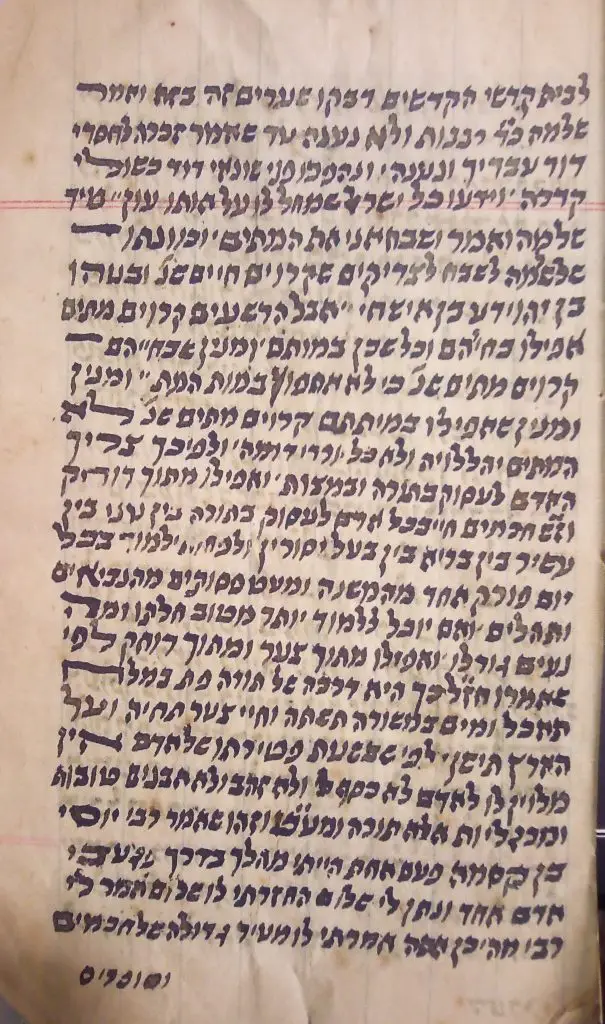 לבית קדשי הקדשים דבקו שערים זה בזה ואמר
שלמה כ״ד רננות ולא נענה עד שאמר זכרה לחסדי
דוד עבדיך ונענה׳ ונהפכו פני שונאי דוד כשולי
קדרה׳ וידעו כל ישראל שמחל לו על אותו עון״ מיד
שלמה ואמר ושבח אני את המתים׳ וכוונתו
שלשלמה לשבח לצדיקים שקרוים חיים שנ׳ ובניהו
בן יהוידע בן איש חי׳״ אבל הרשעים קרוים מתים
אפילו בחייהם וכל שכן במותם׳ ומנין שבחייהם
קרוים מתים שנ׳ כי לא אחפוץ במות המת״ ומנין
ומנין שאפילו במיתתם קרוים מתים שנ׳ לא
המתים יהללו יה ולא כל יורדי דומה׳ ולפיכך צריך
האדם לעסוק בתורה ובמצות׳ ואפילו מתוך דוחק
וז״ש חכמים חייב כל אדם לעסוק בתורה בין עני בין
עשיר בין בריא בין בעל יסורין ולפחות ילמוד בכל
יום פורק אחד מהמשנה ומעט פסוקים מהנביאים
ותהלים׳ ואם יוכל ללמוד יותר מטוב חלקו ומה
נעים גורלו׳ ואפילו מתוך צער ומתוך דוחק לפי
שאמרו חז״ל כך היא דרכה של תורה פת במלח
תאכל ומים במשורה תשתה וחיי צער תחיה ועל
הארץ תישן׳ לפי שבשעת פטירתו של אדם אין
מלוין לו לאדם לא כסף ולא זהב ולא אבנים טובות
ומרגליות אלא תורה ומע״ט וזהו שאמר רבי יוסי
בן קסמה פעם אחת הייתי מהלך בדרך פגע בי
אדם אחד ונתן לי שלום החזרתי לו שלום אמר לי
רבי מהיכן אתה אמרתי לו מעיר גדולה של חכמים
וסופרים